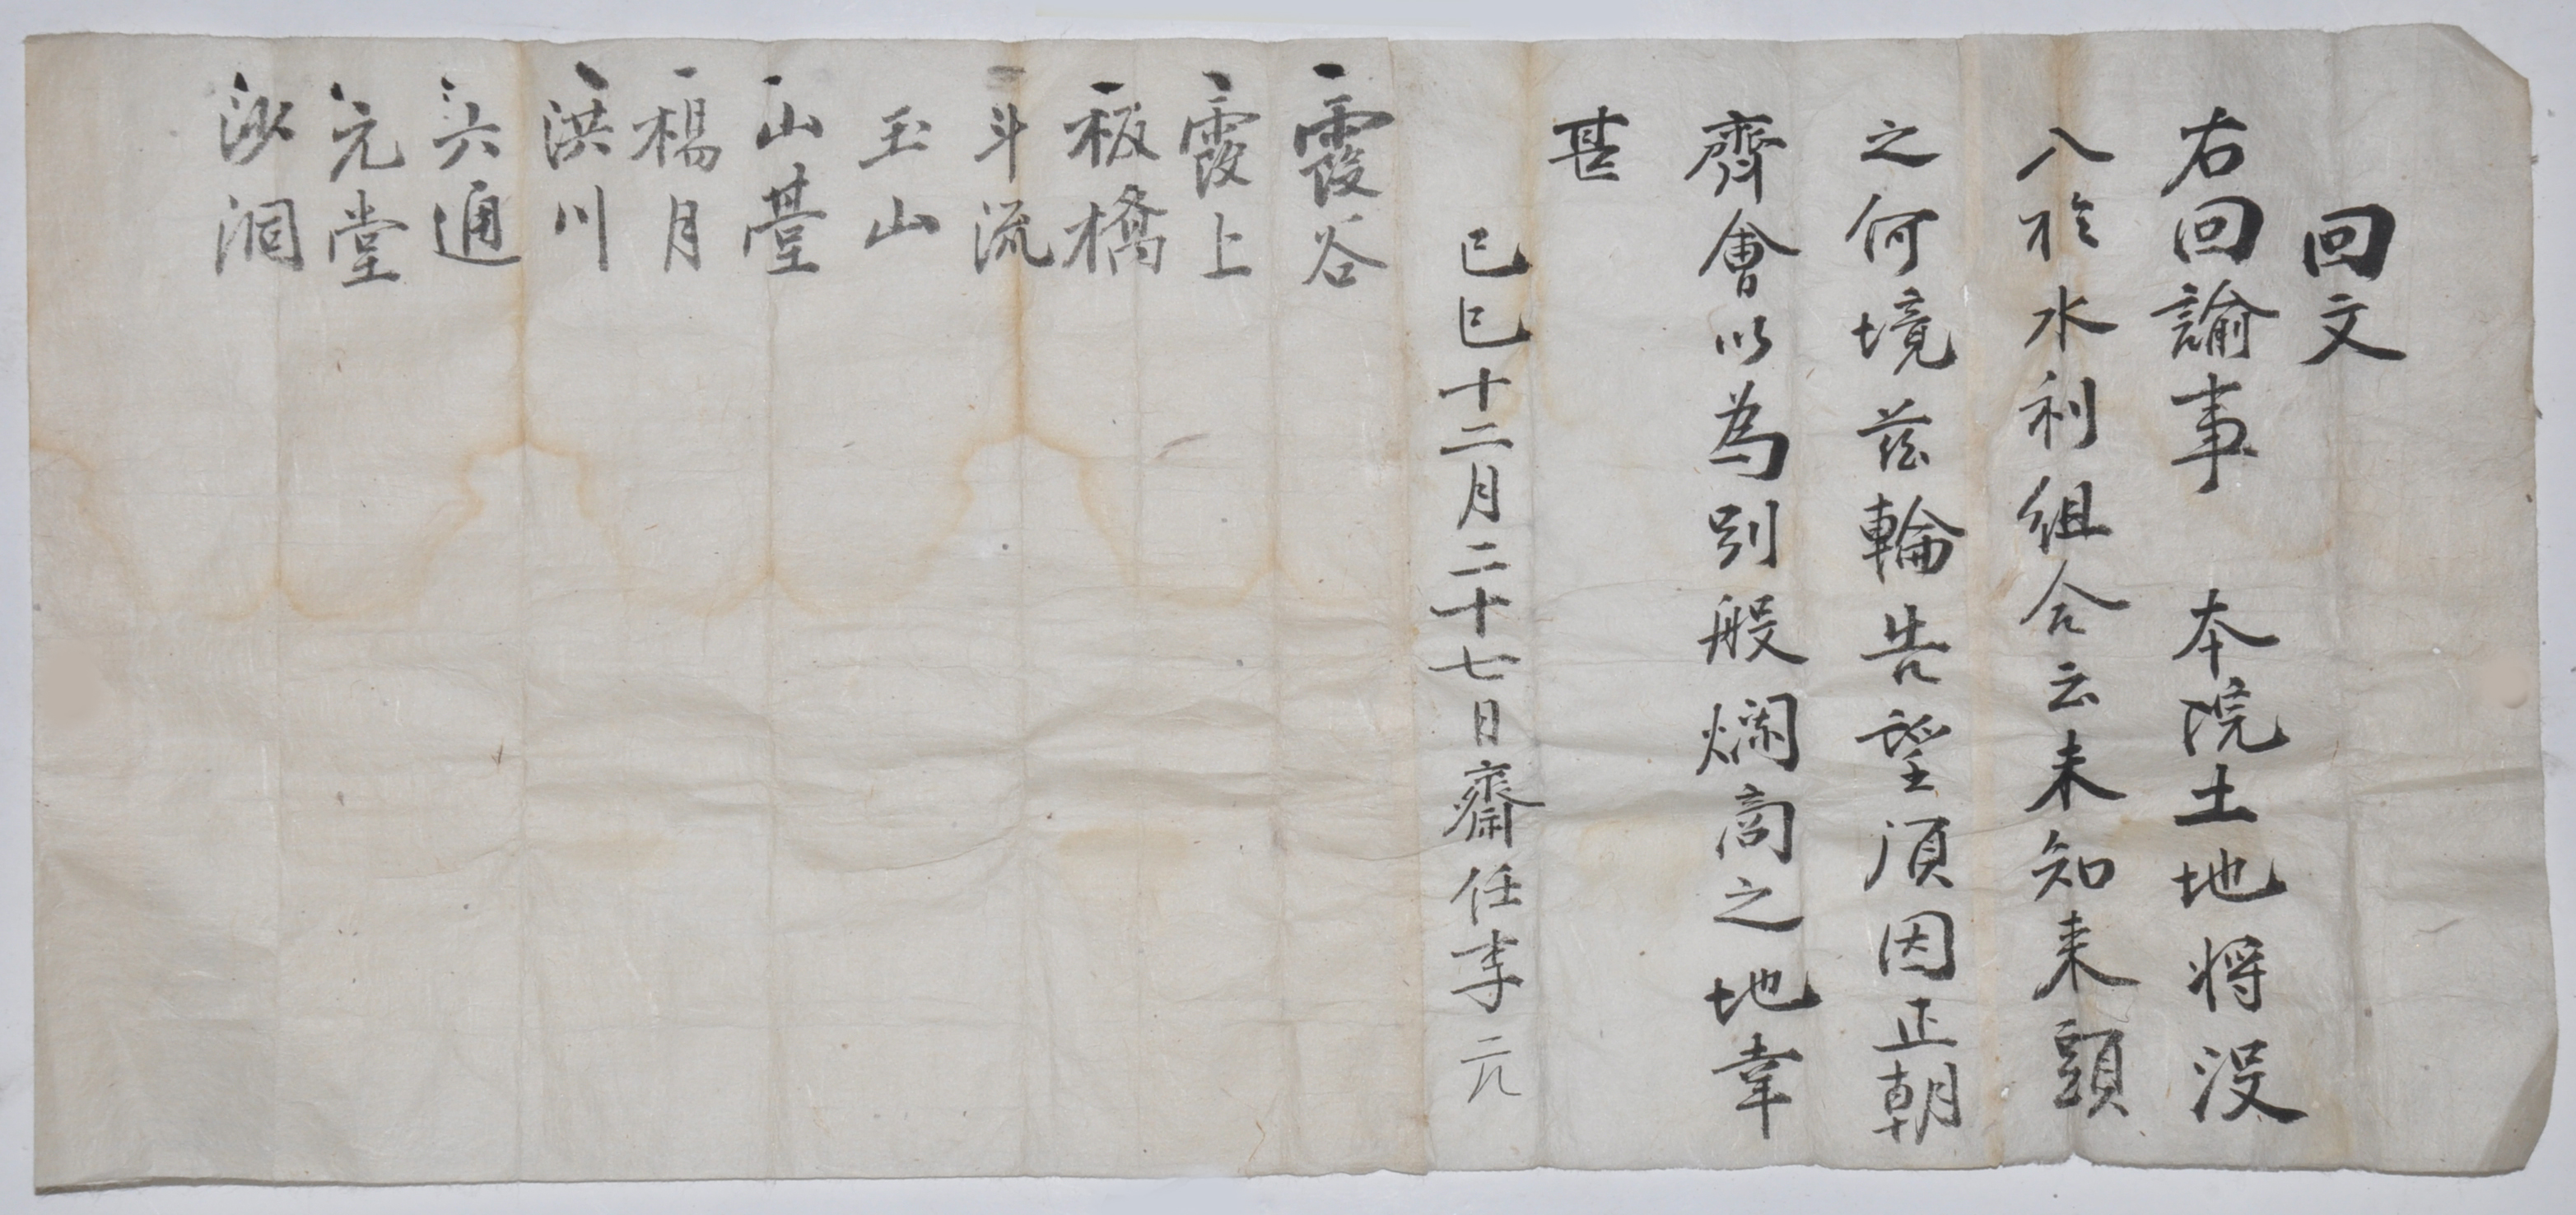 回文
右回諭事 本院土地将没
入於水利組合云未知来頭
之何境玆輪告望須因正朝
齊會以為別般爛商之地幸
甚
己巳十二月二十七日齋任李元
一霞谷
一霞上
一板橋
一斗流
玉山
一山臺
一楊月
一洪川
一六通
一元堂
一沙洞